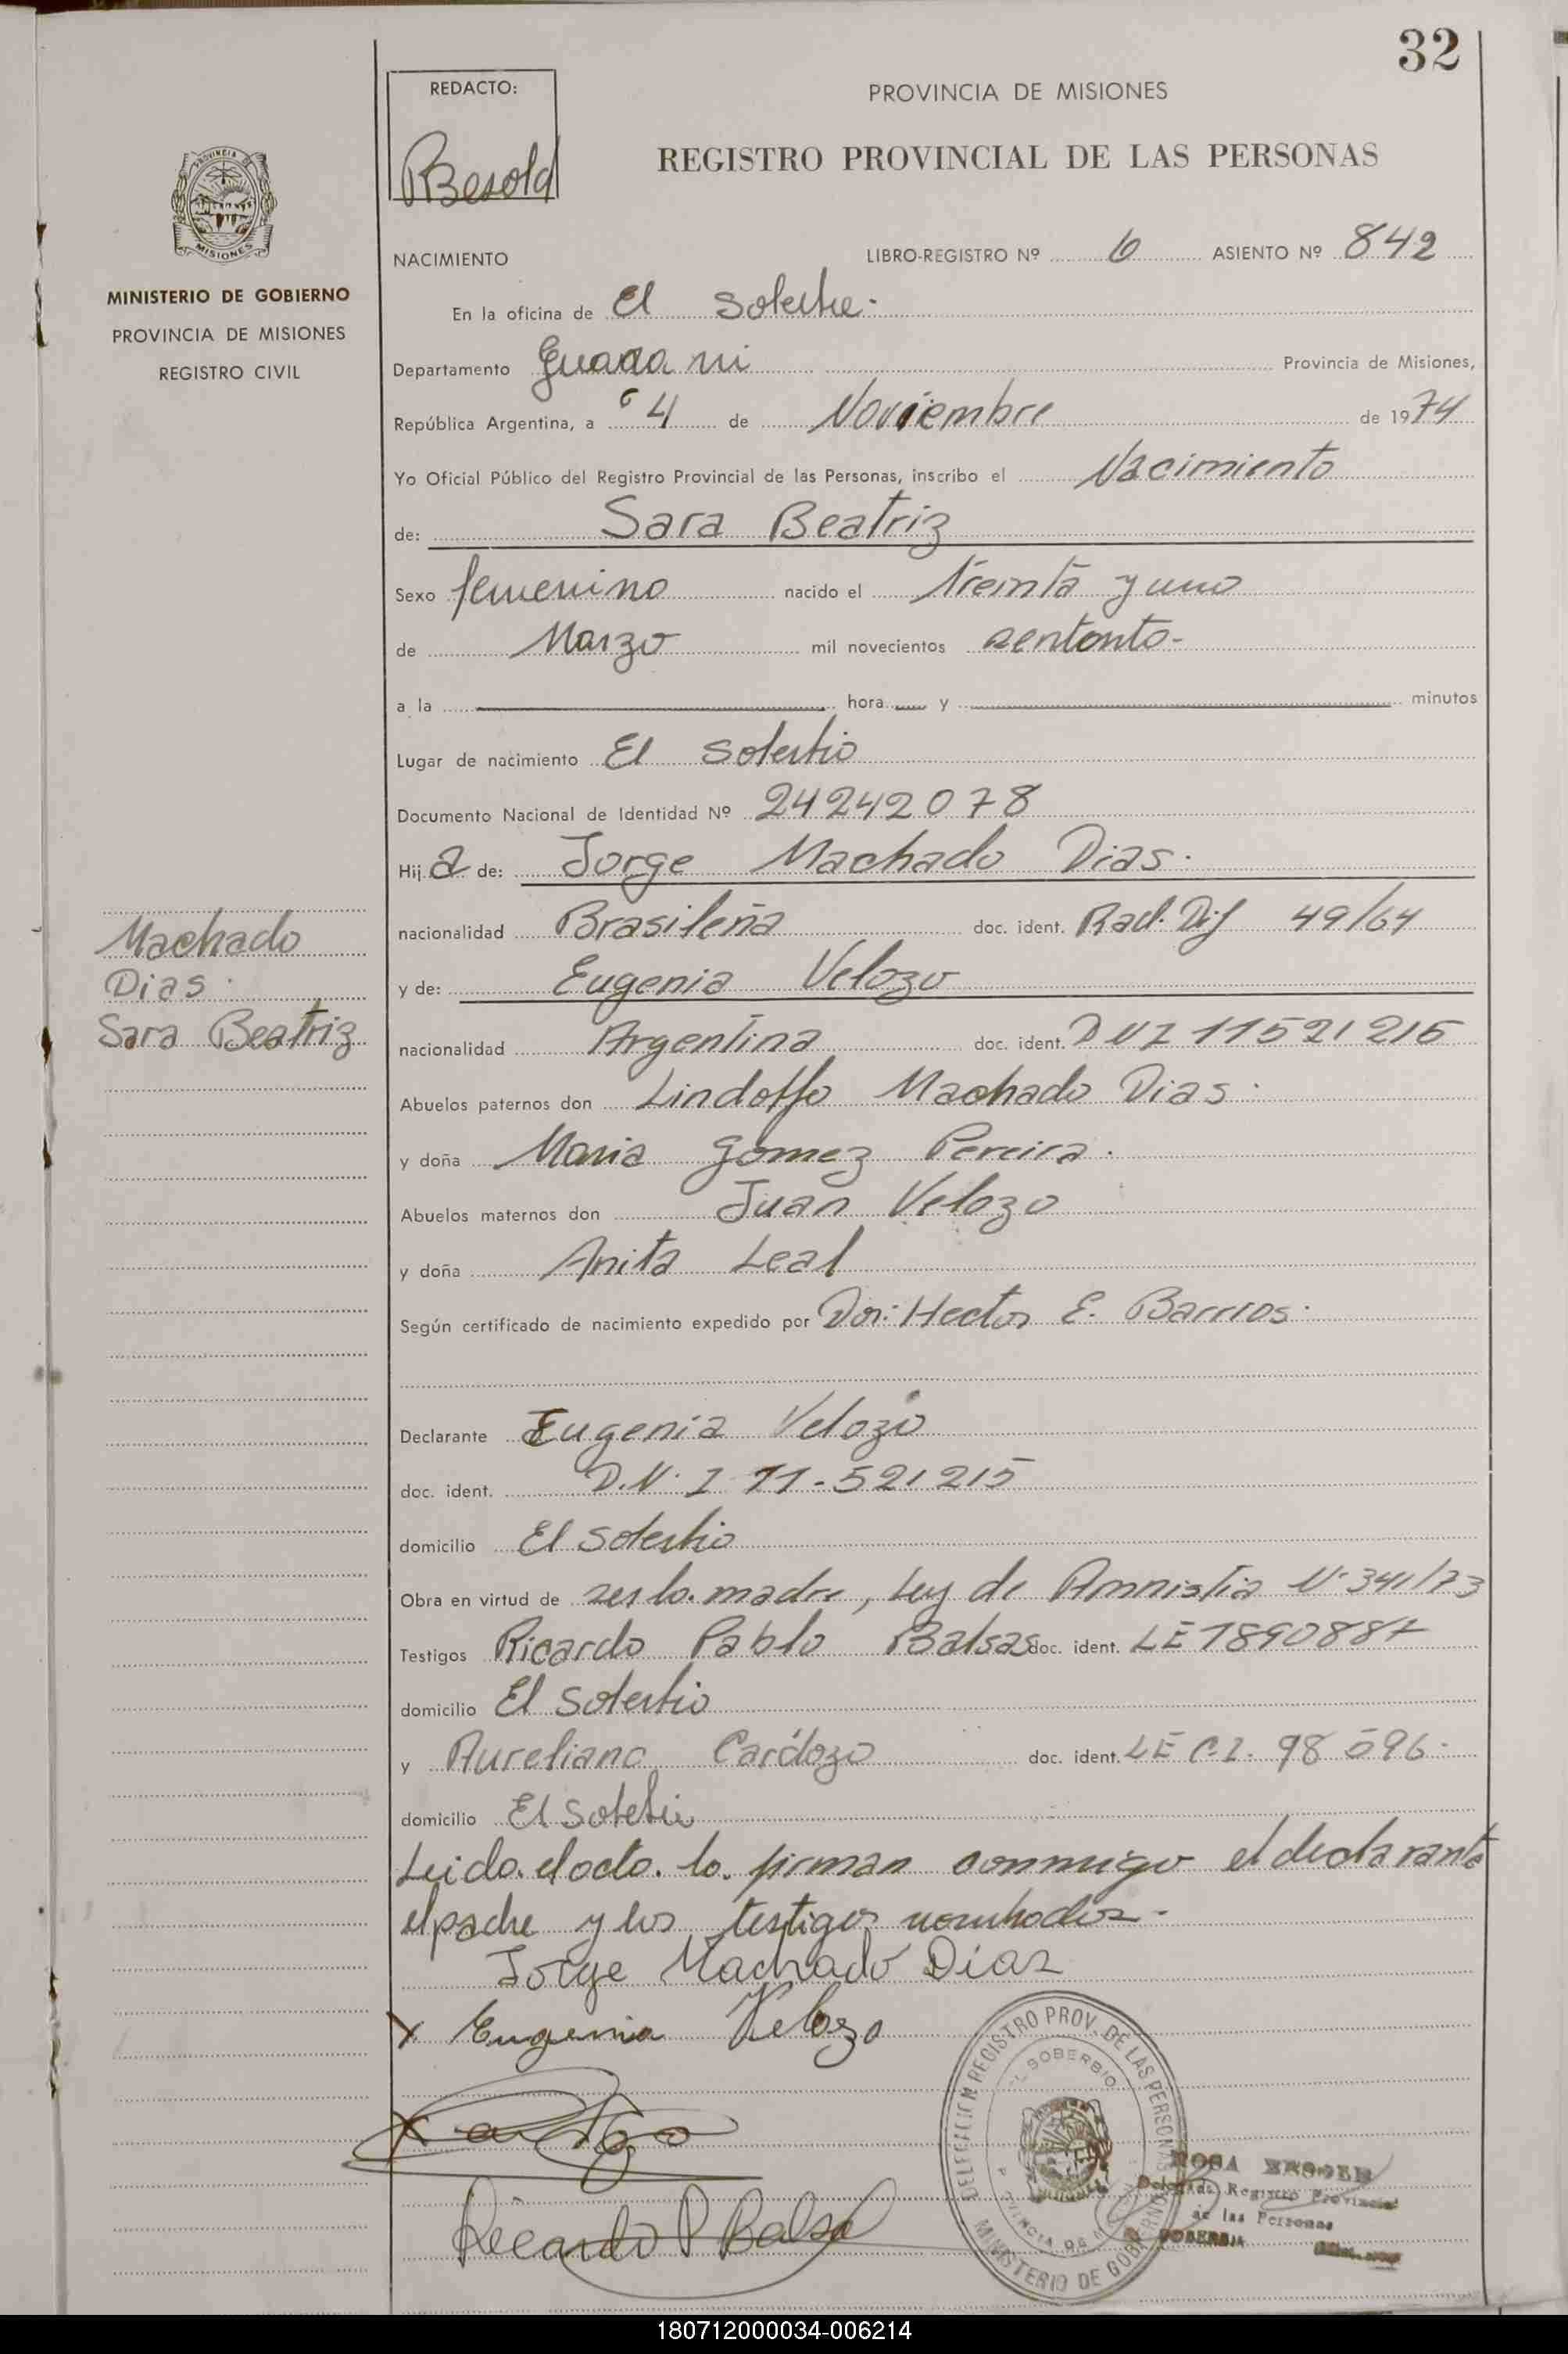 32
REDACTO:
Besold
PROVINCIA DE MISIONES
REGISTRO PROVINCIAL DE LAS PERSONAS
PROVINCIA DE
MISIONES
MINISTERIO DE GOBIERNO
PROVINCIA DE MISIONES
REGISTRO CIVIL
NACIMIENTO LIBRO-REGISTRO Nº 6 ASIENTO Nº 842
En la oficina de El Soberbio.
Departamento Guarani Provincia de Misiones,
República Argentina, a 4 de Noviembre de 1974
Yo Oficial Público del Registro Provincial de las Personas, inscribo el Nacimiento
de: Sara Beatriz
Sexo femenino nacido el treinta y uno
de Marzo mil novecientos
a la hora y minutos
Lugar de nacimiento El Soberbio
Documento Nacional de Identidad Nº 24242078
Hija de: Jorge Machado Dias.
nacionalidad Brasileña doc. ident. Rad. Dif 49/64
Machado
Dias.
Sara Beatriz
y de: Eugenia Velozo
nacionalidad Argentina doc. ident. DNI 11521215
Abuelos paternos don Lindolfo Machado Dias.
y doña Maria Gomez Pereira.
Abuelos maternos don Juan Velozo
y doña Anita Leal
Según certificado de nacimiento expedido por Dor: Hector E. Barrios.
Declarante Eugenia Velozo
doc. ident. D.N.I 11-521215
domicilio El Soberbio
Obra en virtud de ser la madre, Ley de Amnistia Nº 341/73
Testigos Ricardo Pablo Balsas doc. ident. LE 7890887
domicilio El Soberbio
y Aureliano Cardozo doc. ident. LE C.I. 98 596.
domicilio El Soberbio
Leida el acta la firman conmigo el declarante
el padre y los testigos nombrados.
Jorge Machado Dias
x Eugenia Velozo
Ricardo P Balsa
DELEGACION REGISTRO PROV. DE LAS PERSONAS
EL SOBERBIO
PROVINCIA DE MISIONES
MINISTERIO DE GOBIERNO
ROSA
Delegada Registro Provincial
de las Personas
SOBERBIA
180712000034-006214